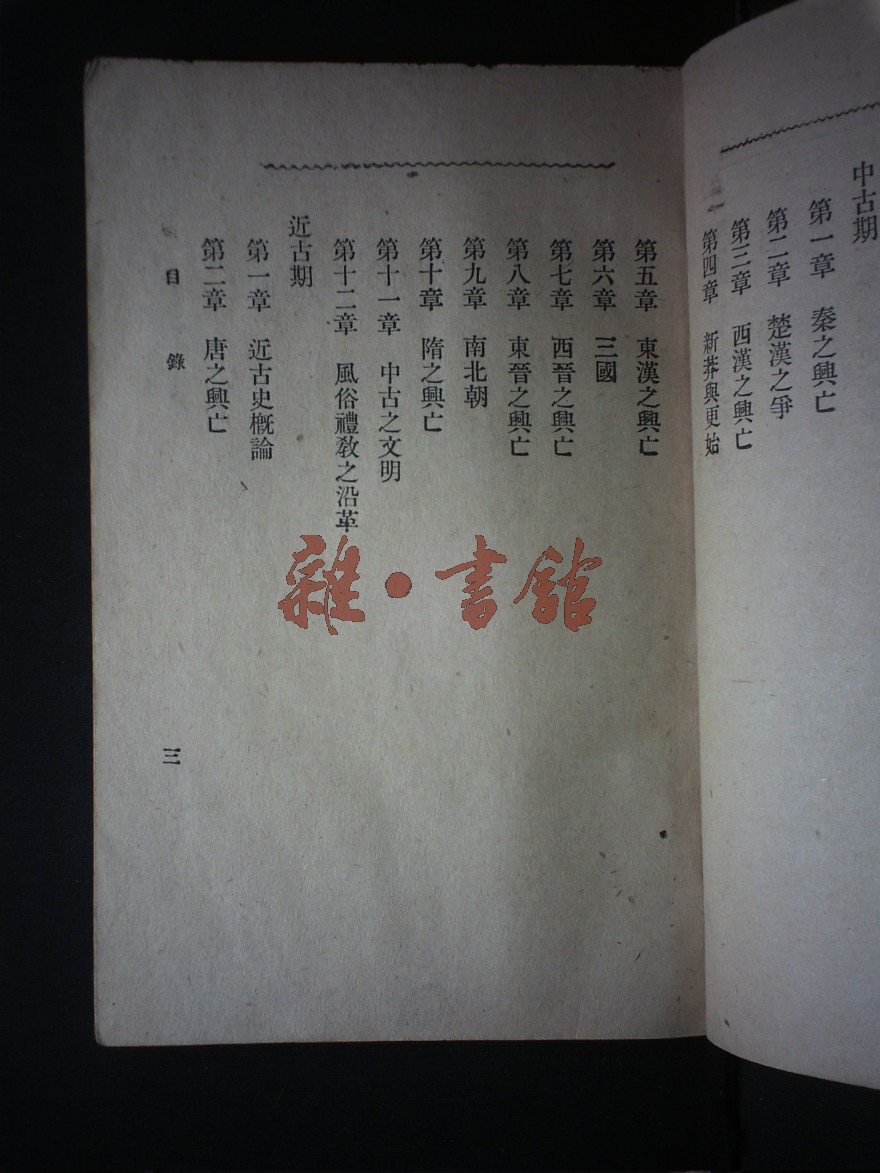 中古期
第一章　秦之興亡
第二章　楚漢之爭
第三章　西漢之興亡
第四章　新莽與更始
第五章　東漢之興亡
第六章　三國
第七章　西晉之興亡
第八章　東晉之興亡
第九章　南北朝
第十章　隋之興亡
第十一章　中古之文明
第十二章　風俗禮敎之沿革
近古期
第一章　近古史概論
第二章　唐之興亡
目錄
三
雜·書館